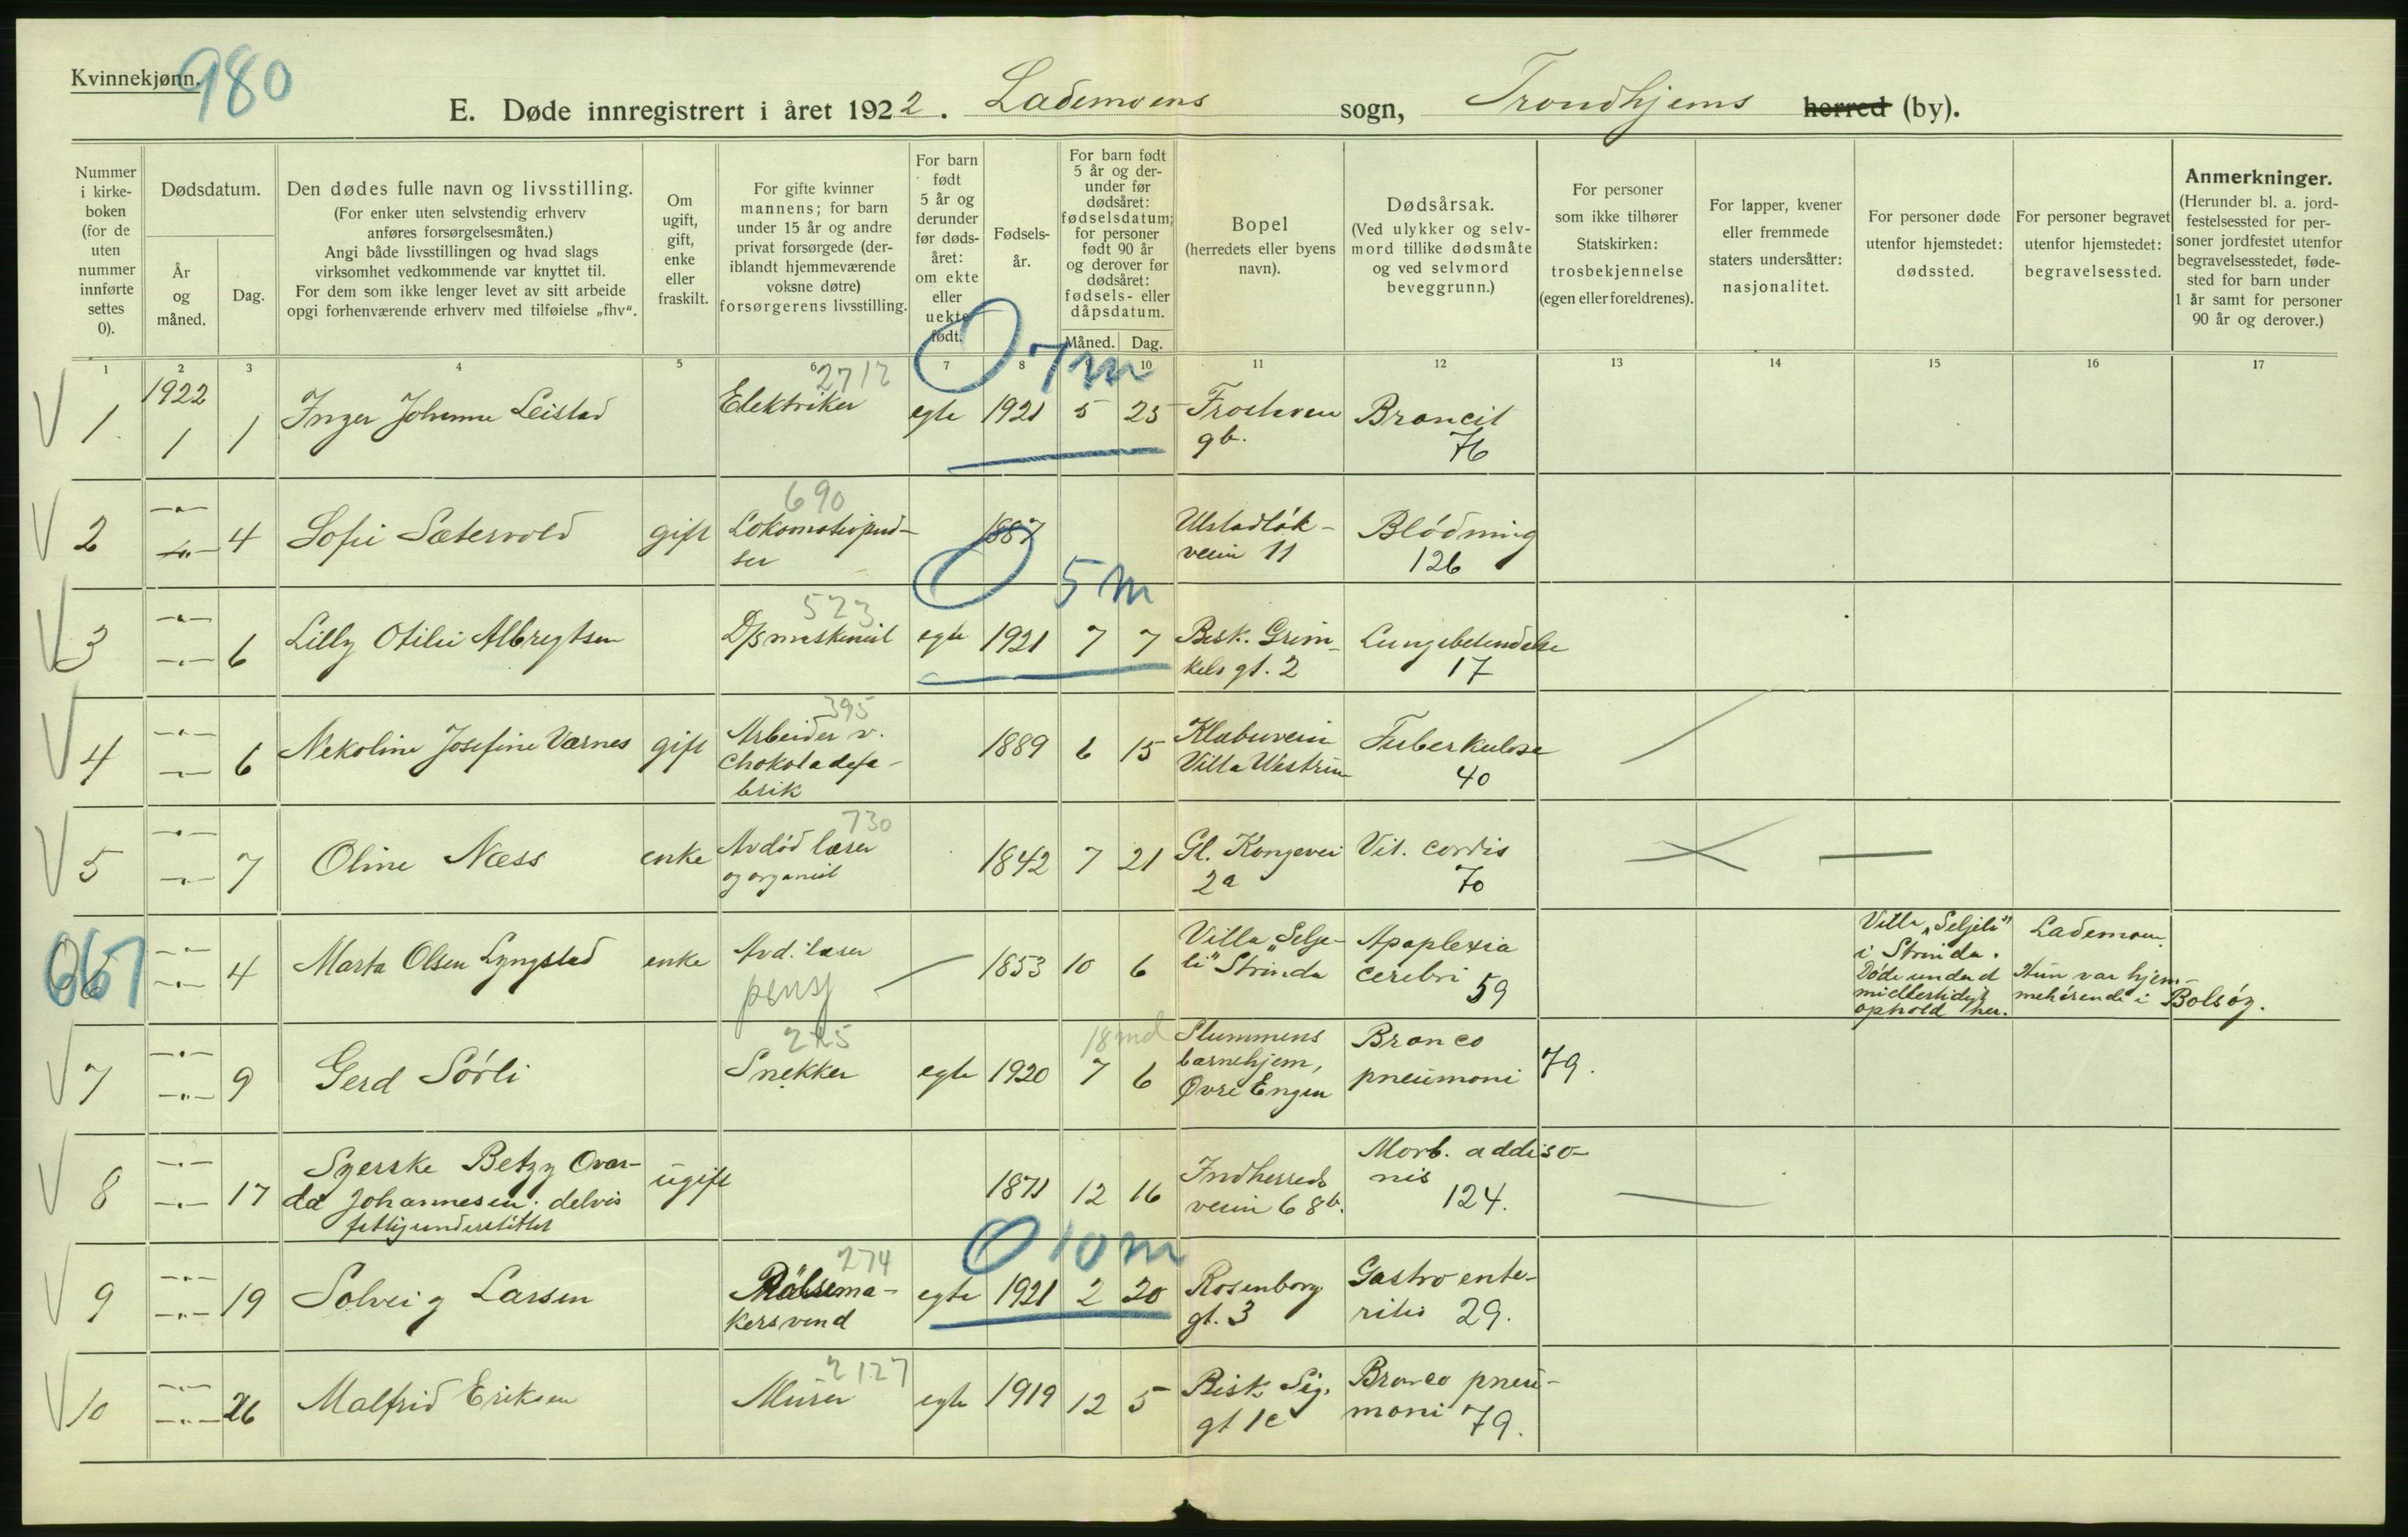 Kvinnekjønn.
980
E. Døde innregistrert i året 1922. Lademoens sogn, Trondhjems herred (by).
Nummer i kirkeboken (for de uten nummer innførte settes 0).
Dødsdatum.
År og måned.
Dag.
Den dødes fulle navn og livsstilling.
(For enker uten selvstendig erhverv
anføres forsørgelsesmåten.)
Angi både livsstillingen og hvad slags
virksomhet vedkommende var knyttet til.
For dem som ikke lenger levet av sitt arbeide
opgi forhenværende erhverv med tilføielse „fhv“.
Om ugift, gift, enke eller fraskilt.
For gifte kvinner
mannens; for barn
under 15 år og andre
privat forsørgede (der-
iblandt hjemmeværende
voksne døtre)
forsørgerens livsstilling.
For barn født 5 år og derunder før døds-året: om ekte eller uekte født.
Fødsels-år.
For barn født
5 år og der-
under før
dødsåret:
fødselsdatum;
for personer
født 90 år
og derover før
dødsåret:
fødsels- eller
dåpsdatum.
Måned. Dag.
Bopel
(herredets eller byens
navn).
Dødsårsak.
(Ved ulykker og selv-
mord tillike dødsmåte
og ved selvmord
beveggrunn.)
For personer
som ikke tilhører
Statskirken:
trosbekjennelse
(egen eller foreldrenes).
For lapper, kvener
eller fremmede
staters undersåtter:
nasjonalitet.
For personer døde
utenfor hjemstedet:
dødssted.
For personer begravet
utenfor hjemstedet:
begravelsessted.
Anmerkninger.
(Herunder bl. a. jord-
festelsessted for per-
soner jordfestet utenfor
begravelsesstedet, føde-
sted for barn under
1 år samt for personer
90 år og derover.)
1 2 3 4 5 6 7 8 9 10 11 12 13 14 15 16 17
2712 0 7m
1. 1922 1 1 Inger Johanne Leistad Elektriker egte 1921 5 25 Frostaveien
9b. Broncit 76
690
2 4 Sofie Sætervold gift Lokomotivpud-
ser 1887 Ulstadløk-
veien 11 Blødning 126
523 0 5m
3 6 Lilly Otilie Albregtsen D/s maskinist egte 1921 7 7 Bisk. Grim-
kels gt. 2 Lungebetendelse 17
395
4 6 Nekoline Josefine Værnes gift Arbeider v.
chokoladefa-
brik 1889 6 15 Klæbuveien
Villa Westrum Tuberkulose 40
730
5 7 Oline Næss enke Avdød lærer
og organist 1842 7 21 Gl. Kongevei
2a Vit. cordis 70
667
6 4 Marta Olsen Lyngstad enke Avd. lærer
pensj 1853 10 6 Villa „Selje-
li“ Strinda Apoplexia
cerebri 59 Villa „Seljeli“
i Strinda.
Døde under et
midlertidig
ophold her. Lademoen.
Hun var hjem-
mehørende i Bolsøy.
215 18 md
7 9 Gerd Sørli Snekker egte 1920 7 6 Slummens
barnehjem,
Øvre Engen Bronco
pneumoni 79.
8 17 Syerske Betzy Ovar-
da Johannesen, delvis
fattigunderstøttet ugift 1871 12 16 Indherreds
veien 68b. Morb. addiso-
nis 124.
274 0 10m
9 19 Solveig Larsen Pølsema-
kersvend egte 1921 2 20 Rosenborg
gt. 3 Gastroente-
ritis 29.
2127
10 26 Malfrid Eriksen Murer egte 1919 12 5 Bisk. Sig.
gt 1c Bronco pneu-
moni 79.